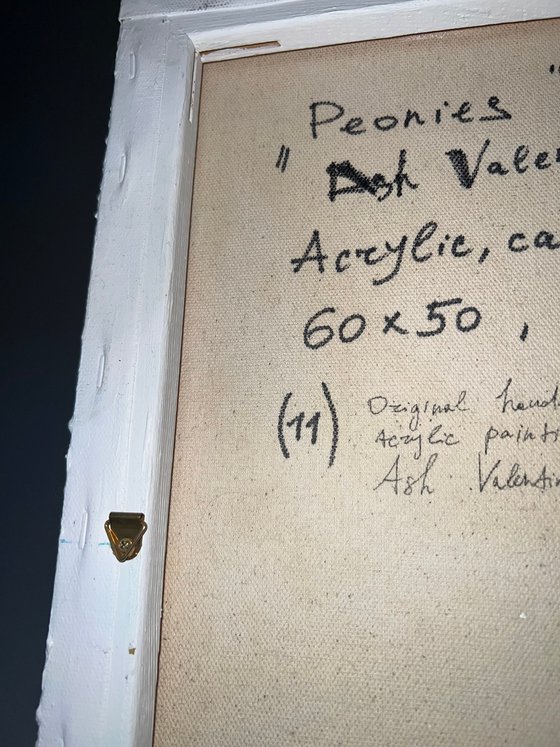 Peonies "
" Ash Vale
Acrylic, ca
60 x 50 ,
(11)
Original hand
acrylic painti
Ash Valentin